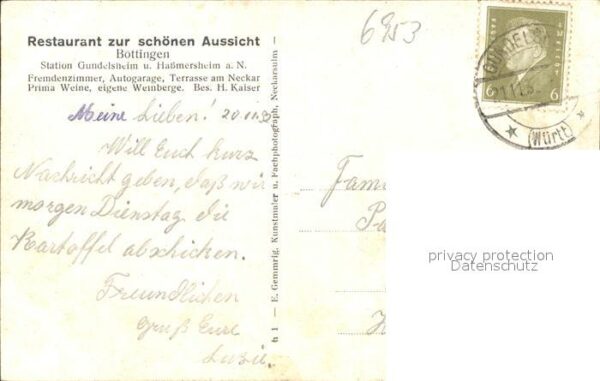 6953
Restaurant zur schönen Aussicht
Böttingen
Station Gundelsheim u. Haßmersheim a. N.
Fremdenzimmer, Autogarage, Terrasse am Neckar
Prima Weine, eigene Weinberge. Bes. H. Kaiser
Meine Lieben! 20.11.
Will Euch kurz
Nachricht geben, daß wir
morgen Dienstag die
Kartoffel abschicken.
Freundlichen
Gruß Eure
Luzie.
h 1 — E. Gemmrig, Kunstmaler u. Fachphotograph, Neckarsulm —
6 6
GUNDELS
(Württ)
Fam
privacy protection
Datenschutz